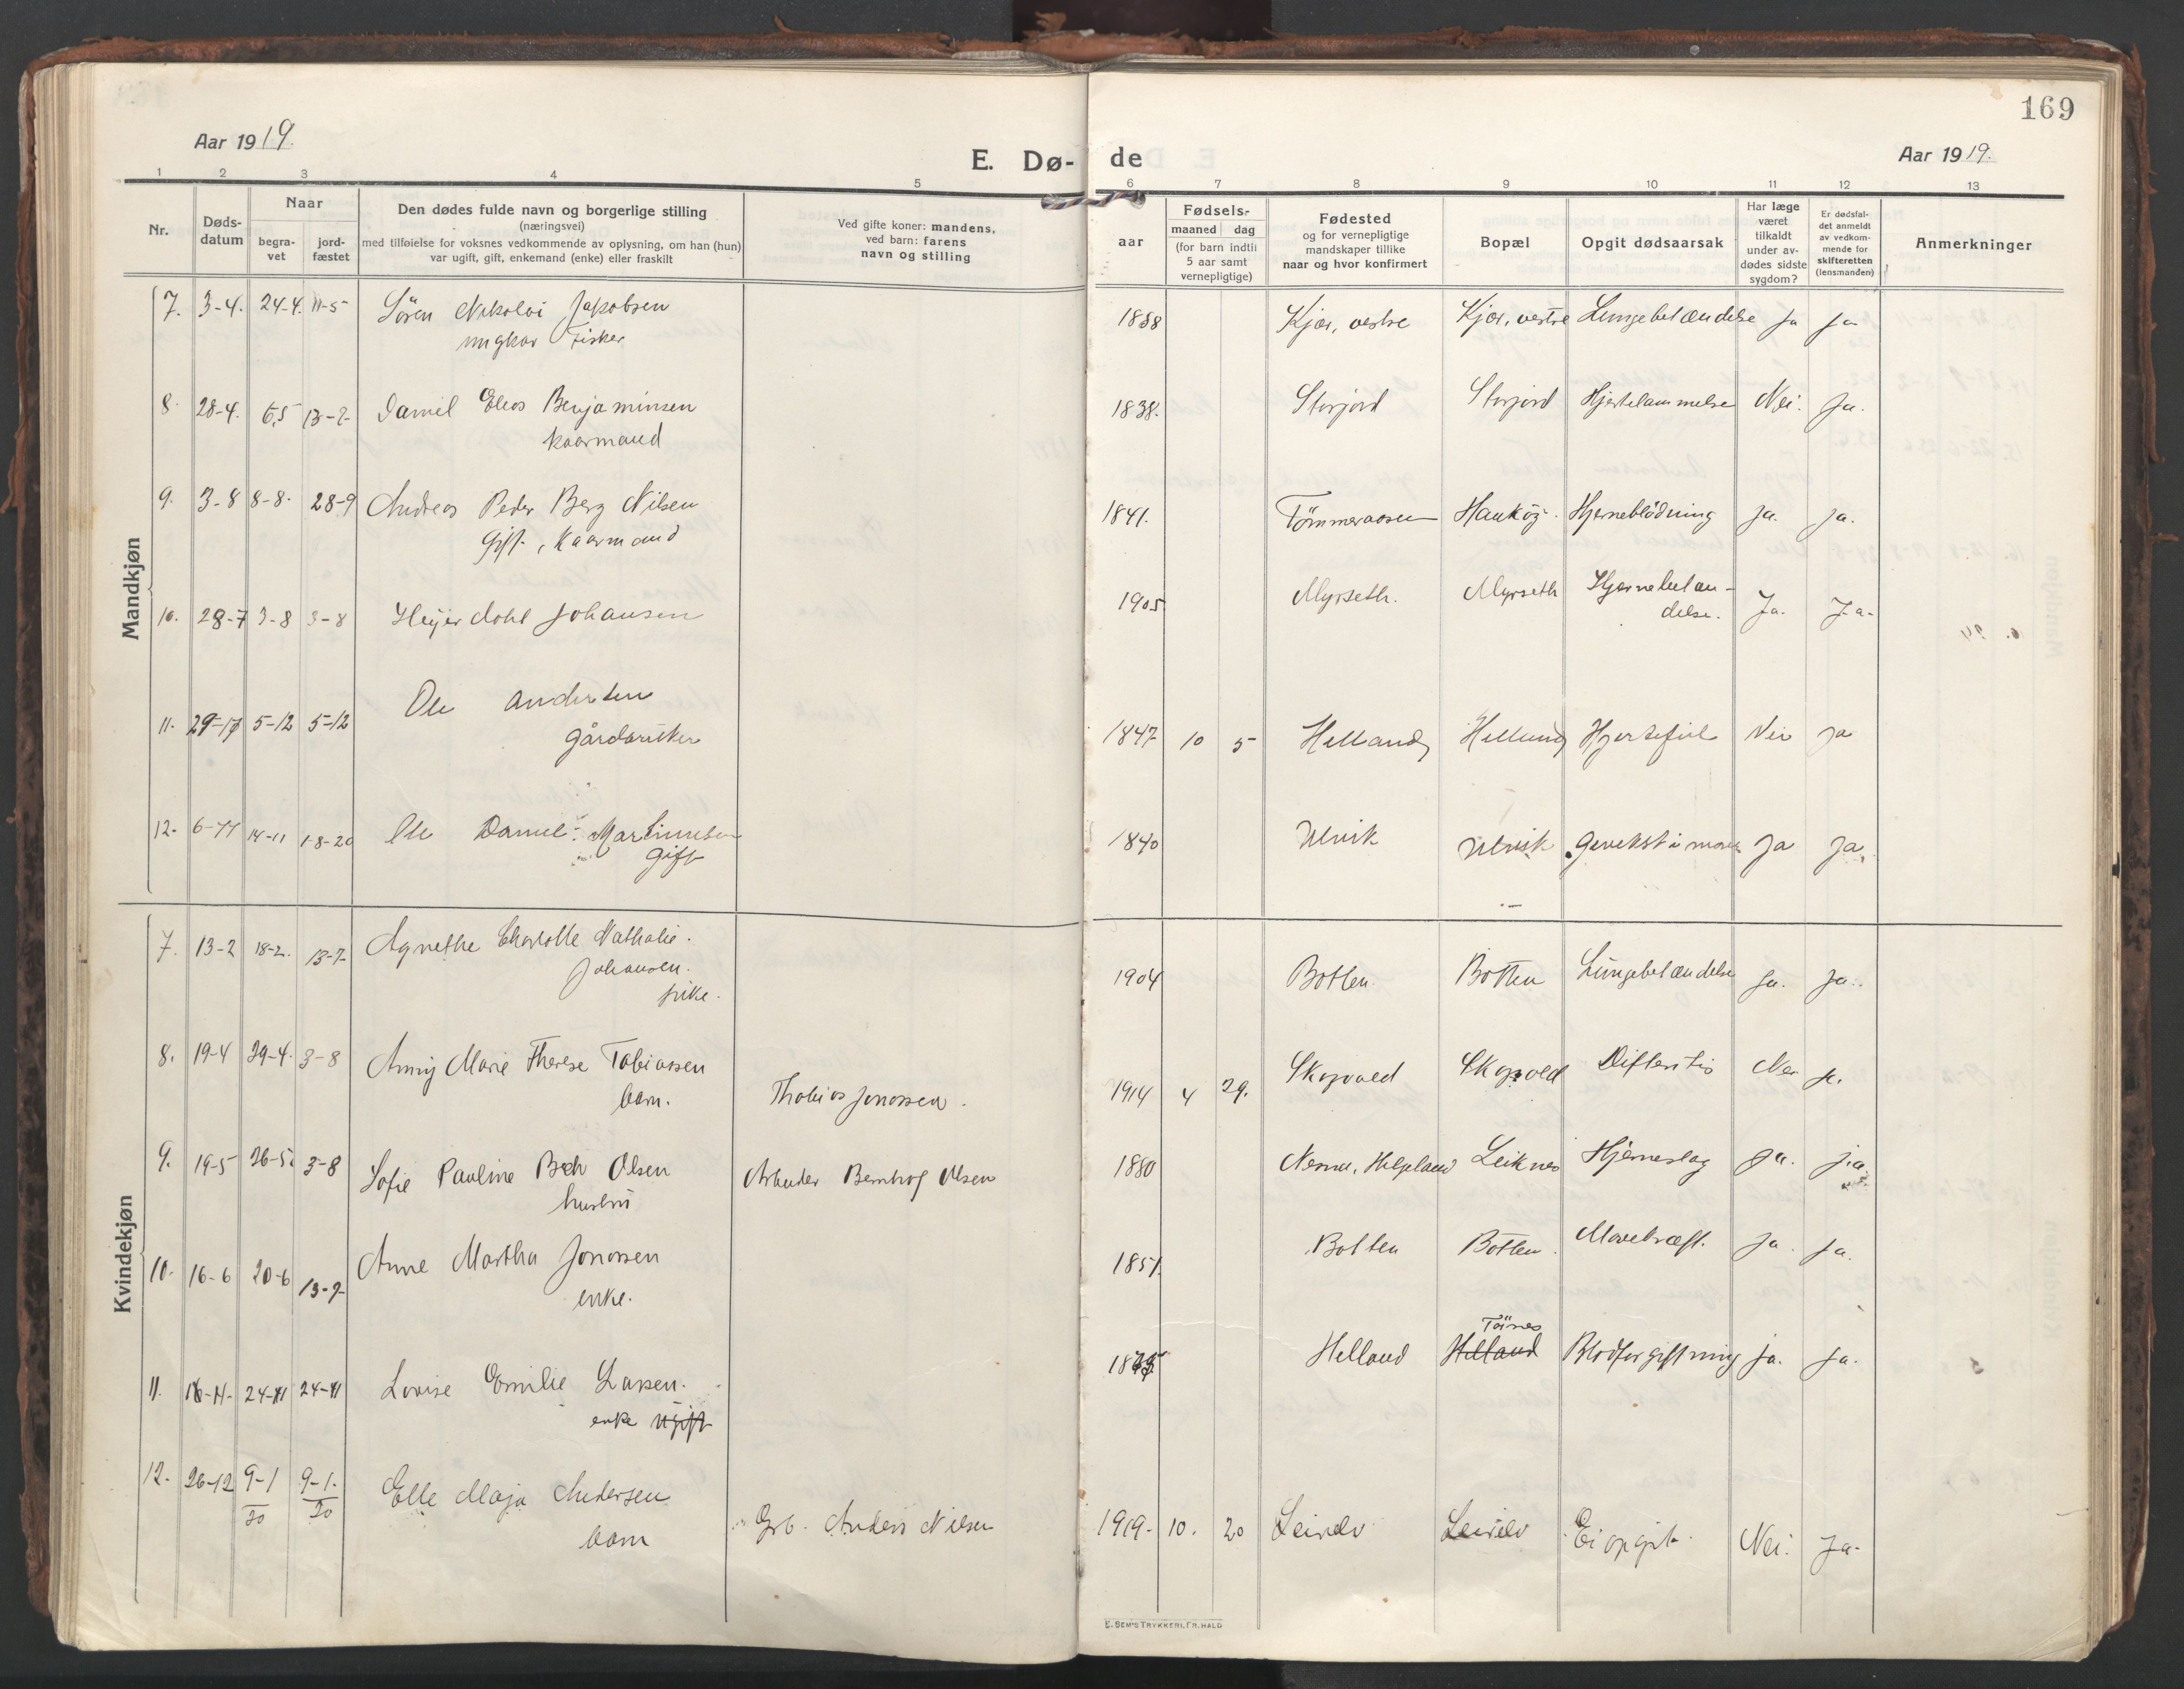 169
Aar 1919.
E. Dø- de
Aar 1919.
1 2 3 4 5 6 7 8 9 10 11 12 13
Nr.
Døds-
datum
Naar
begra-
vet
jord-
fæstet
Den dødes fulde navn og borgerlige stilling
(næringsvei)
med tilføielse for voksnes vedkommende av oplysning, om han (hun)
var ugift, gift, enkemand (enke) eller fraskilt
Ved gifte koner: mandens,
ved barn: farens
navn og stilling
aar
Fødsels-
maaned dag
(for barn indtil
5 aar samt
vernepligtige)
Fødested
og for vernepligtige
mandskaper tillike
naar og hvor konfirmert
Bopæl
Opgit dødsaarsak
Har læge
været
tilkaldt
under av-
dødes sidste
sygdom?
Er dødsfal-
det anmeldt
av vedkom-
mende for
skifteretten
(lensmanden)
Anmerkninger
Mandkjøn
7. 3-4. 24-4. 11-5 Sören Nikolai Jakobsen 1858 Kjær, vestre Kjær, vestre Lungebetændelse Ja Ja
ungkar Fisker
8. 28-4. 6,5 13-7- Daniel Eleas Benjaminsen 1838. Storjord Storjord Hjertelammelse Nei. Ja.
kaarmand
9. 3-8 8-8. 28-9 Andreas Peder Berg Nilsen 1841. Tömmeraasen Hauköy. Hjerneblödning Ja. Ja.
Gift, Kaarmand
10. 28-7 3-8 3-8 Heyerdahl Johansen 1905 Myrseth. Myrseth Hjernebetæn-
delse. Ja. Ja.
11. 29-11 5-12 5-12 Ole Andersen 1847 10 5 Helland Helland Hjertefeil Nei Ja
gårdbruker
12. 6-11 14-11 1-8-20 Ole Daniel Martinussen 1840 Ulvik Ulvik Gevekst i maven Ja Ja.
Gift
Kvindekjøn
7. 13-2 18-2. 13-7- Agnethe Charlotte Nathalie 1904 Botten Botten Lungebetændelse Ja. Ja.
Johansen.
pike.
8. 19-4 29-4. 3-8 Anny Marie Therese Tobiassen Thobias Jonassen. 1914 4 29. Skogvold Skogvold Difteritis Nei Ja.
barn.
9. 19-5 26-5. 3-8 Sofie Pauline Bech Olsen Arbeider Bernhof Olsen 1880 Nesna, Helgeland Leiknes Hjerneslag Ja. ja
hustru
10. 16-6 20-6 13-7- Anne Martha Jonassen 1851. Botten Botten. Mavekræft. Ja. Ja.
enke.
Töines
11. 16-11- 24-11 24-11 Lovise Emilie Larsen. Helland Helland Blodforgiftning Ja. Ja.
enke ugift
12. 26-12 9-1 9-1. Elle Maja Andersen Grb. Anders Nilsen 1919- 10. 20 Leirelv Leirelv Ei opgit. Nei. Ja.
20 20
barn
E. SEM'S TRYKKERI, FR. HALD